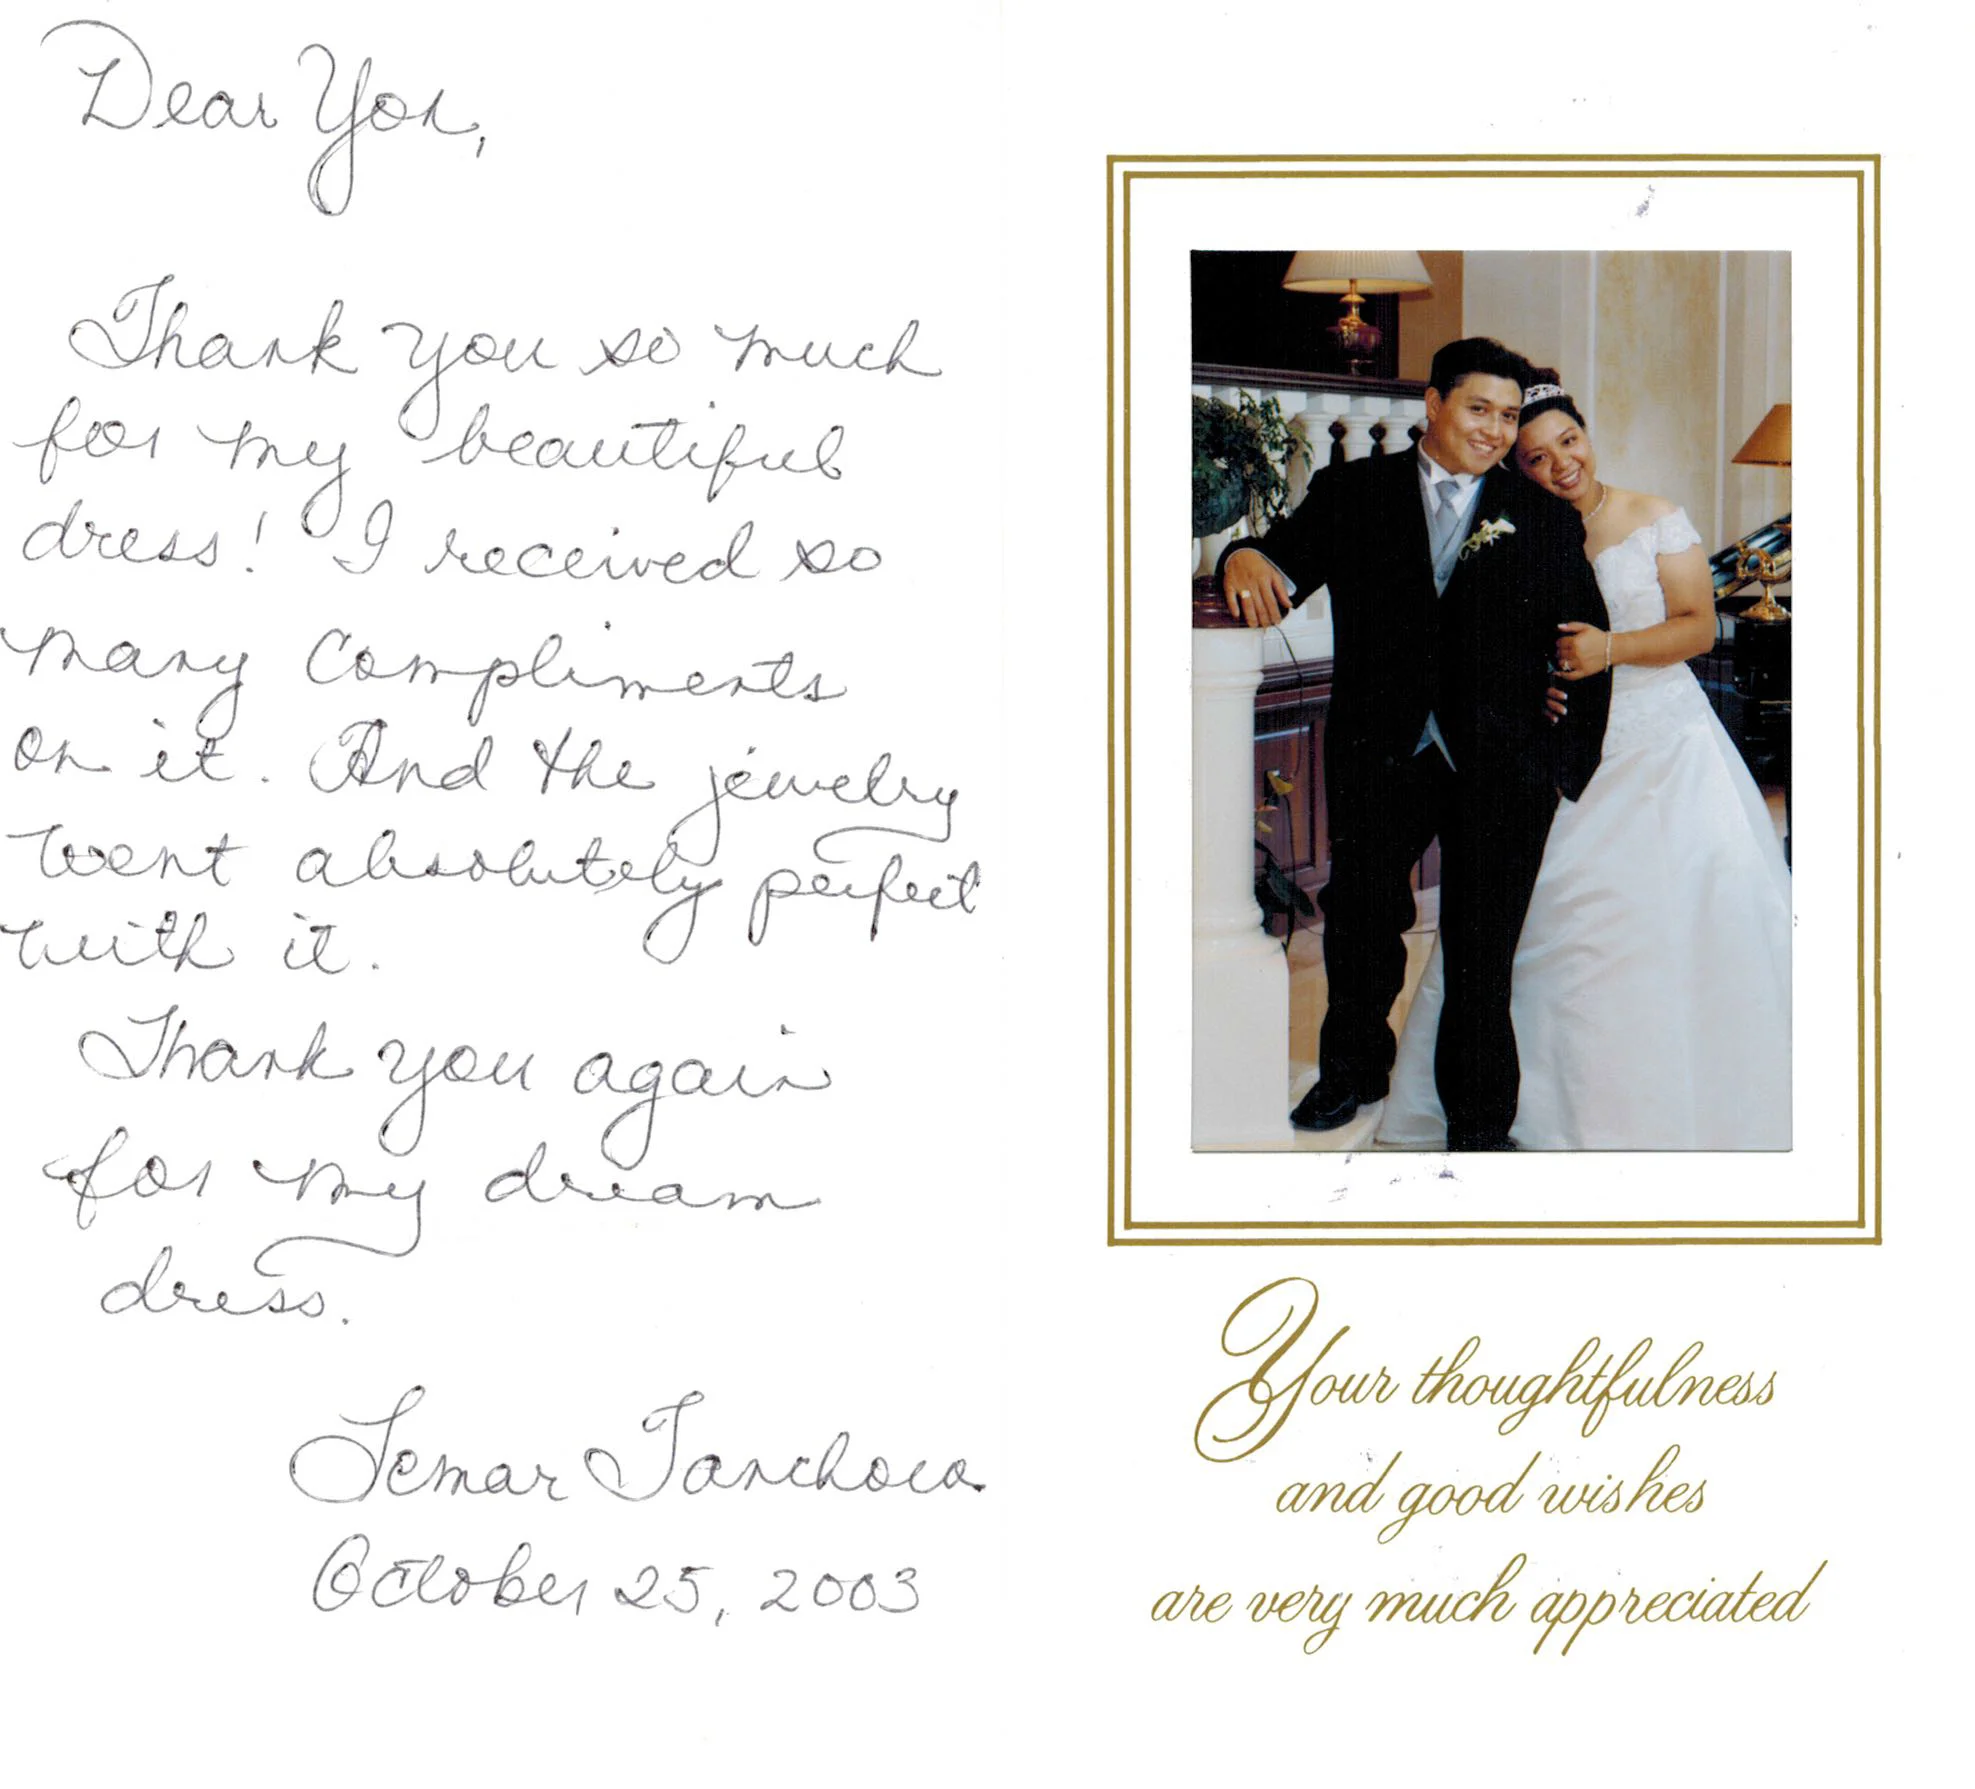 Dear Yon,
Thank you so much
for my beautiful
dress! I received so
many compliments
on it. And the jewelry
went absolutely perfect
with it.
Thank you again
for my dream
dress.
October 25, 2003
Your thoughtfulness
and good wishes
are very much appreciated